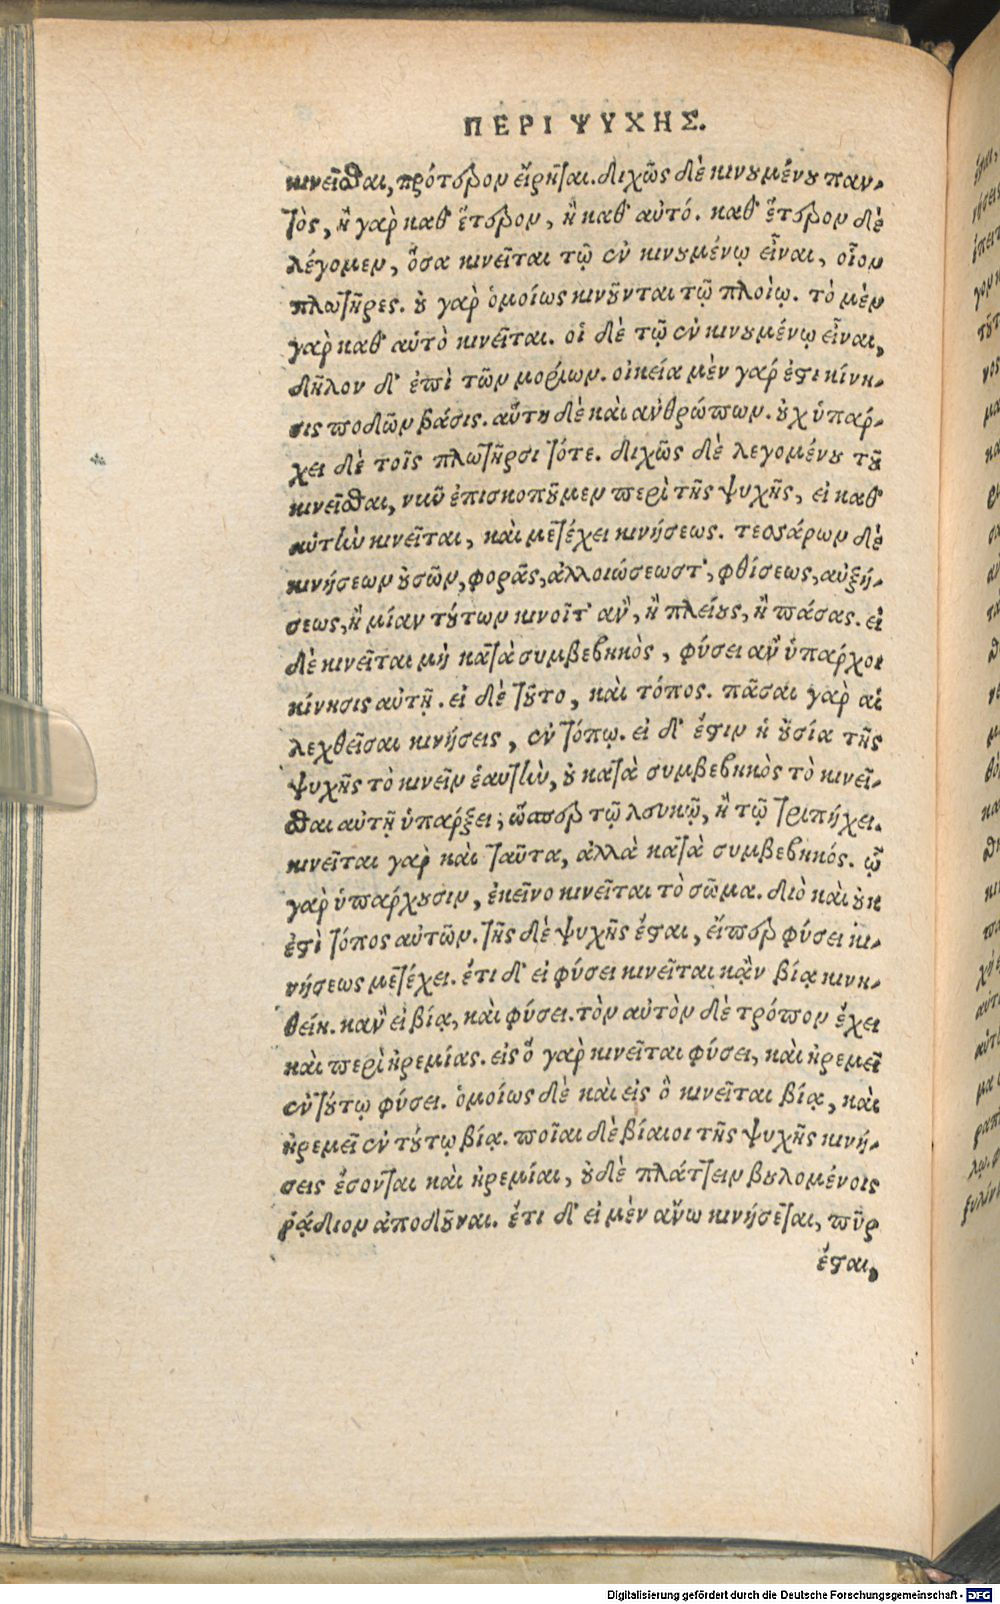 ΠΕΡΙ ΨΥΧΗΣ.
κινεῖσθαι, πρότερον εἴρηται. διχῶς δὲ κινουμένου παν-
τὸς, ἢ γὰρ καθ᾽ ἕτερον, ἢ καθ᾽ αὑτό. καθ᾽ ἕτερον δὲ
λέγομεν, ὅσα κινεῖται τῷ ἐν κινουμένῳ εἶναι, οἷον
πλωτῆρες. οὐ γὰρ ὁμοίως κινοῦνται τῷ πλοίῳ. τὸ μὲν
γὰρ καθ᾽ αὑτὸ κινεῖται. οἱ δὲ τῷ ἐν κινουμένῳ εἶναι,
δῆλον δ᾽ ἐπὶ τῶν μορίων. οἰκεία μὲν γάρ ἐστι κίνη-
σις ποδῶν βάσις. αὕτη δὲ καὶ ανθρώπων. οὐχ ὑπάρ-
χει δὲ τοῖς πλωτῆρσι τότε. διχῶς δὲ λεγομένου τοῦ
κινεῖσθαι, νυῦ ἐπισκοποῦμεν περὶ τῆς ψυχῆς, εἰ καθ᾽
αὑτὴν κινεῖται, καὶ μετέχει κινήσεως. τεσσάρων δὲ
κινήσεων οὐσῶν, φορᾶς, ἀλλοιώσεωστ᾽, φθίσεως, αὐξή-
σεως, ἢ μίαν τούτων κινοῖτ᾽ ἂν, ἢ πλείους, ἢ πάσας. εἰ
δὲ κινεῖται μὴ κατὰ συμβεβηκὸς, φύσει ἂν ὑπάρχοι
κίνησις αὐτῇ. εἰ δὲ τοῦτο, καὶ τόπος. πᾶσαι γὰρ αἱ
λεχθεῖσαι κινήσεις, ἐν τόπῳ. εἰ δ᾽ ἔστιν ἡ οὐσία τῆς
ψυχῆς τὸ κινεῖν ἑαυτὴν, οὐ κατὰ συμβεβηκὸς τὸ κινεῖ-
σθαι αὐτῇ ὑπάρξει, ὥσπερ τῷ λευκῷ, ἢ τῷ τριπήχει.
κινεῖται γὰρ καὶ ταῦτα, ἀλλὰ κατὰ συμβεβηκός. ᾧ
γὰρ ὑπάρχουσιν, ἐκεῖνο κινεῖται τὸ σῶμα. διὸ καὶ οὐκ
ἐστὶ τόπος αὐτῶν. τῆς δὲ ψυχῆς ἔσται, εἴπερ φύσει κι-
νήσεως μετέχει. ἔτι δ᾽ εἰ φύσει κινεῖται κᾂν βίᾳ κινη-
θείη. κἂν εἰ βίᾳ, καὶ φύσει. τὸν αὐτὸν δὲ τρόπον ἔχει
καὶ περὶ ἠρεμίας. εἰς ὃ γὰρ κινεῖται φύσει, καὶ ἠρεμεῖ
ἐν τούτῳ φύσει. ὁμοίως δὲ καὶ εἰς ὃ κινεῖται βίᾳ, καὶ
ἠρεμεῖ ἐν τούτῳ βίᾳ. ποῖαι δὲ βίαιοι τῆς ψυχῆς κινή-
σεις ἔσονται καὶ ἠρεμίαι, οὐδὲ πλάττειν βουλομένοις
ῥᾴδιον ἀποδοῦναι. ἔτι δ᾽ εἰ μὲν ἄνω κινήσεται, πῦρ
ἔσται,
Digitalisierung gefördert durch die Deutsche Forschungsgemeinschaft - DFG